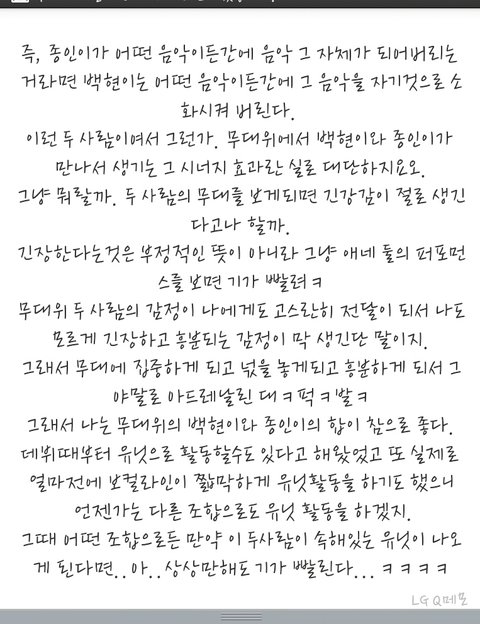 즉, 종인이가 어떤 음악이든간에 음악 그 자체가 되어버리는
거라면 백현이는 어떤 음악이든간에 그 음악을 자기것으로 소
화시켜 버린다.
이런 두 사람이여서 그런가. 무대위에서 백현이와 종인이가
만나서 생기는 그 시너지 효과란 실로 대단하지요오.
그냥 뭐랄까. 두 사람의 무대를 보게되면 긴강감이 절로 생긴
다고나 할까.
긴장한다는것은 부정적인 뜻이 아니라 그냥 얘네 둘의 퍼포먼
스를 보면 기가 빨려ㅋ
무대위 두 사람의 감정이 나에게도 고스란히 전달이 되서 나도
모르게 긴장하고 흥분되는 감정이 막 생긴단 말이지.
그래서 무대에 집중하게 되고 넋을 놓게되고 흥분하게 되서 그
야말로 아드레날린 대ㅋ퍽ㅋ발ㅋ
그래서 나는 무대위의 백현이와 종인이의 합이 참으로 좋다.
데뷔때부터 유닛으로 활동할수도 있다고 해왔었고 또 실제로
얼마전에 보컬라인이 짧막하게 유닛활동을 하기도 했으니
언젠가는 다른 조합으로도 유닛 활동을 하겠지.
그때 어떤 조합으로든 만약 이 두사람이 속해있는 유닛이 나오
게 된다면..아..상상만해도 기가 빨린다...ㅋㅋㅋㅋ
LG Q메모